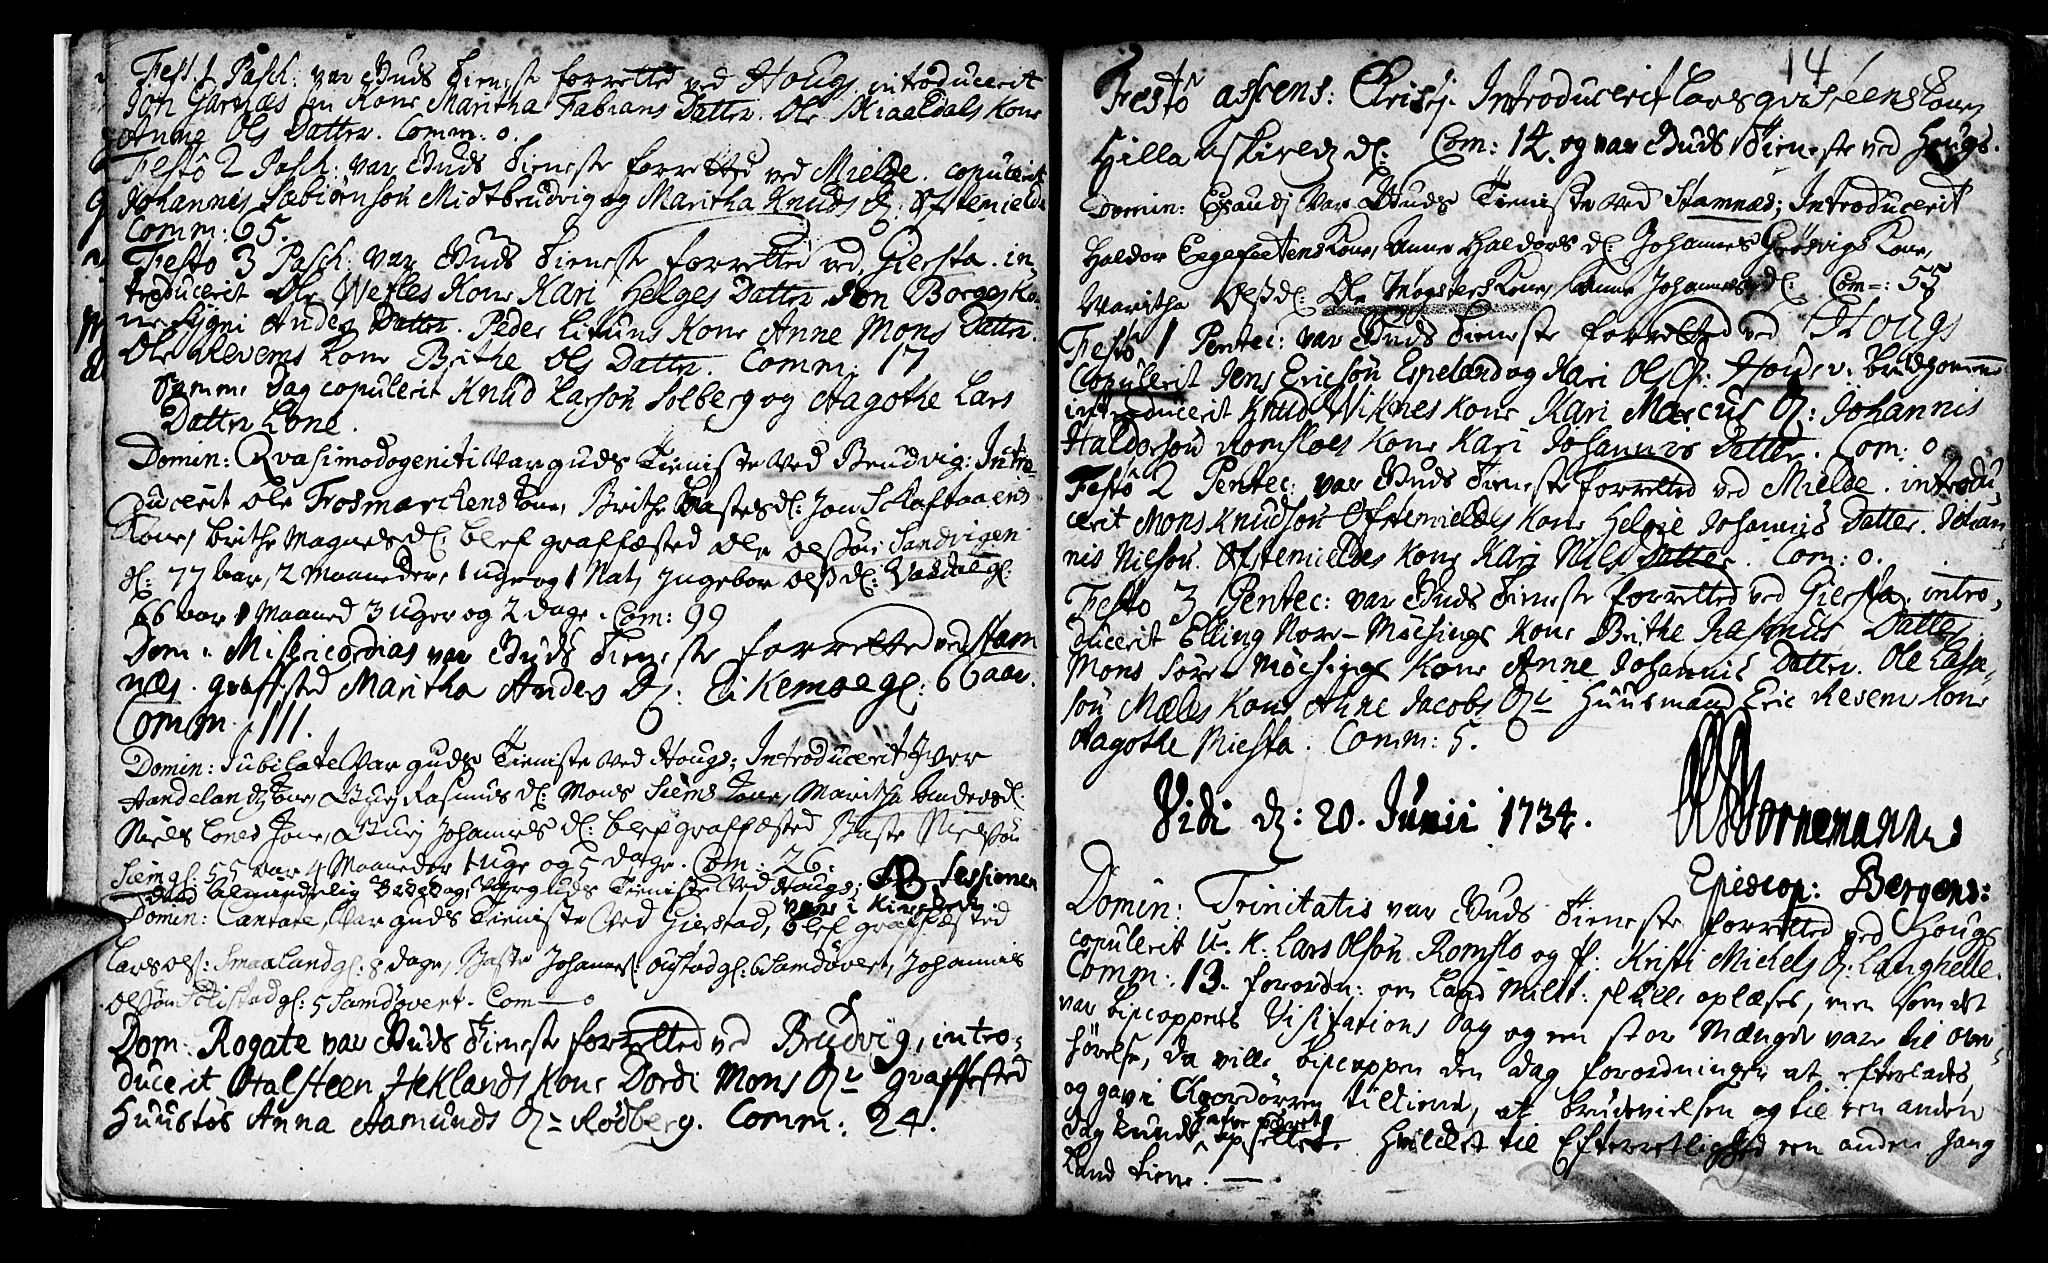 Fest. 1 Pasch: var Guds Tieneste forrettd ved Hougs, introducerit
Jon Giernæs sin Kone Maritha Fabians Datter. Ole Skiaaldals Kone
Anna Ols Datter. Comm: 0.
Festo 2 Pasch: var Guds Tieneste forretted ved Mielde. copulerit
Johannis Sæbiørnsøn Midtbrudvig og Maritha Knuds D: Ostemielde
Comm: 65.
Festo 3 Pasch: var Guds Tieneste forretted ved Giersta. in-
troducerit Ole Wefles Kone Kari Helges Datter. Jon Borges Ko-
ne Sygni Anders Datter. Peder Lituns Kone Anne Mons Datter.
Ole Revems Kone Brithe Ols Datter. Comm: 17
Samme Dag copulerit Knud Larsøn Solberg og Aagothe Lars
Datter Lone.
Domin: Qvasimodogeniti var guds Tieniste ved Brudvig: Intro-
ducerit Ole Trosmarckens Kone, Brithe Bastesd: Jon Schaftaaens
Kone, Brithe Magnesd: blef graffæsted Ole Olssøn Sandvigen
gl: 77 aar, 2 Maaneder, 1 uge og 1 Nat, Ingebor Olsd: Vasdal gl:
66 aar 1 Maaned 3 uger og 2 dage. Com: 99
Dom: Misericordias var Guds Tieneste forretted ved Stam
næs. graffested Maritha Anders D: Eikemoe gl: 66 aar.
Comm: 111.
Domin: Jubilate var guds Tieniste ved Hougs; Introducerit Iver
Aandelands Kone, Guri Rasmus d: Mons Siems Kone, Maritha Andersd:
Niels Lones Kone, Guri Johannes d: blef graffæsted Baste Nielssøn
Siem gl: 55 aar 4 Maaneder 1 uge og 5 dage. Com: 26.
Paa almindelig Bededag, var guds Tieniste ved Hougs; NB Sessionen
var i Kircken
Domin: Cantate, var guds Tieniste ved Gierstad, blef graffæsted
Lars Ols: Smaaland gl: 8 dage, Baste Johannes: Oustad gl: 6 Samdøvert, Johannis
Olssøn Sølistad gl: 5 Samdøvert. Com — 0
Dom. Rogate var Guds Tieneste forretted ved Brudvig, intro-
ducerit Halsteen Heklands Kone Dordi Mons D: graffested
Huustøs Anna Aamunds D: Rødberg. Comm: 24.
14
Festo ascens: Christi. Introducerit Lars qvisteens Kone
Hilla Askields d: Com: 12. og var Guds Tieneste ved Hougs.
Domin: Exaudi var Guds Tieniste ved Stamnæs; Introducerit
Haldor Eegefeetens Kone, Anne Haldors d: Johannes Grøsvigs Kone,
Maritha Olsd: Ole Mogsters Kone, Anne Johannesd: Com: 55
Festo 1 Pentec: var Guds Tieneste forretted ved Hougs
Copulerit Jens Ericsøn Espeland og Kari Ols D: brudgommen
introducerit Knud Wiknes Kone Kari Marcus D: Johannis
Haldorsøn Romsloes Kone Kari Johannis Datter. Com: 0
Festo 2 Pentec: var Guds Tieneste forretted ved Mielde. introdu-
cerit Mons Knudsøn Ostemieldes Kone Helgie Johannis Datter. Johan-
nis Nielsøn Ostemieldes Kone Kari Niels Datter. Com: 0.
Festo 3 Pentec: var Guds Tieneste forretted ved Giersta. intro-
ducerit Elling Nore-Møchings Kone Brithe Rasmus Datter
Mons Søre Møchings Kone Anne Johannis Datter. Ole Lasse-
søn Mæles Kone Anne Jacobs D: Huusmand Eric Resems Kone
Aagothe Miesta. Comm: 5.
Vidi d: 20. Junii 1734.
Bornemann
Episcop: Bergens:
Domin: Trinitatis var Guds Tieneste forretted ved Hougs
copulerit U. K. Lars Olsøn Romslo og p: Kristi Michels D: Langhelle.
Comm: 13. forordn: om Land Milit: skulle oplæses, men som det
var bispoppens Visitations Dag og en stor Mængde var til ov-
hørelse, da ville bispoppen den Dag forordningen at efterlades,
og gav i Chordørren tiltiende, at brudevielsen og til een anden
Dag kunde hafve været
opsettet. Hvilcket til Efterretlighed een anden gang
kand tiene.